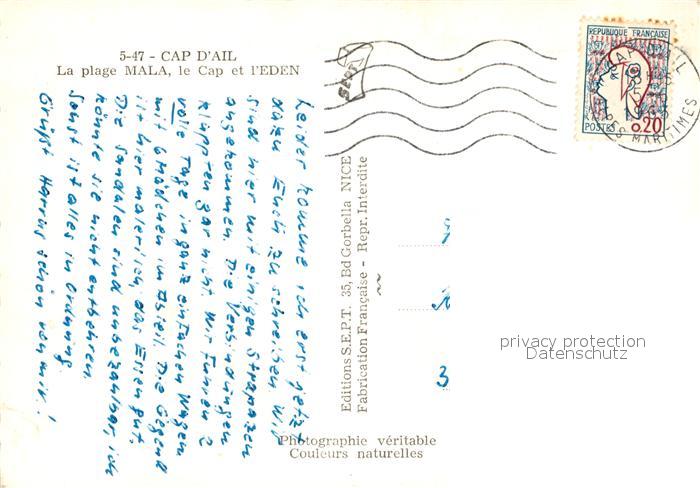 5-47 - CAP D'AIL
La plage MALA, le Cap et l'EDEN
RÉPUBLIQUE FRANÇAISE
POSTES 0.20
CAP D'AIL
ALPES MARITIMES
Leider komme ich erst jetzt
dazu Euch zu schreiben. Wir
sind hier mit einigen Strapazen
angekommen. Die Verbindungen
klappten gar nicht. Wir fuhren 2
volle Tage in ganz einfachen Wagen
mit 6 Mädchen im Abteil. Die Gegend
ist hier malerisch, das Essen gut.
Die Sandalen sind unbezahlbar, ich
könnte sie nicht entbehren.
Sonst ist alles in Ordnung.
Grüßt schön von mir!
Editions S.E.P.T. 35, Bd Gorbella NICE
Fabrication Française - Repr. Interdite
3
privacy protection
Datenschutz
Photographie véritable
Couleurs naturelles